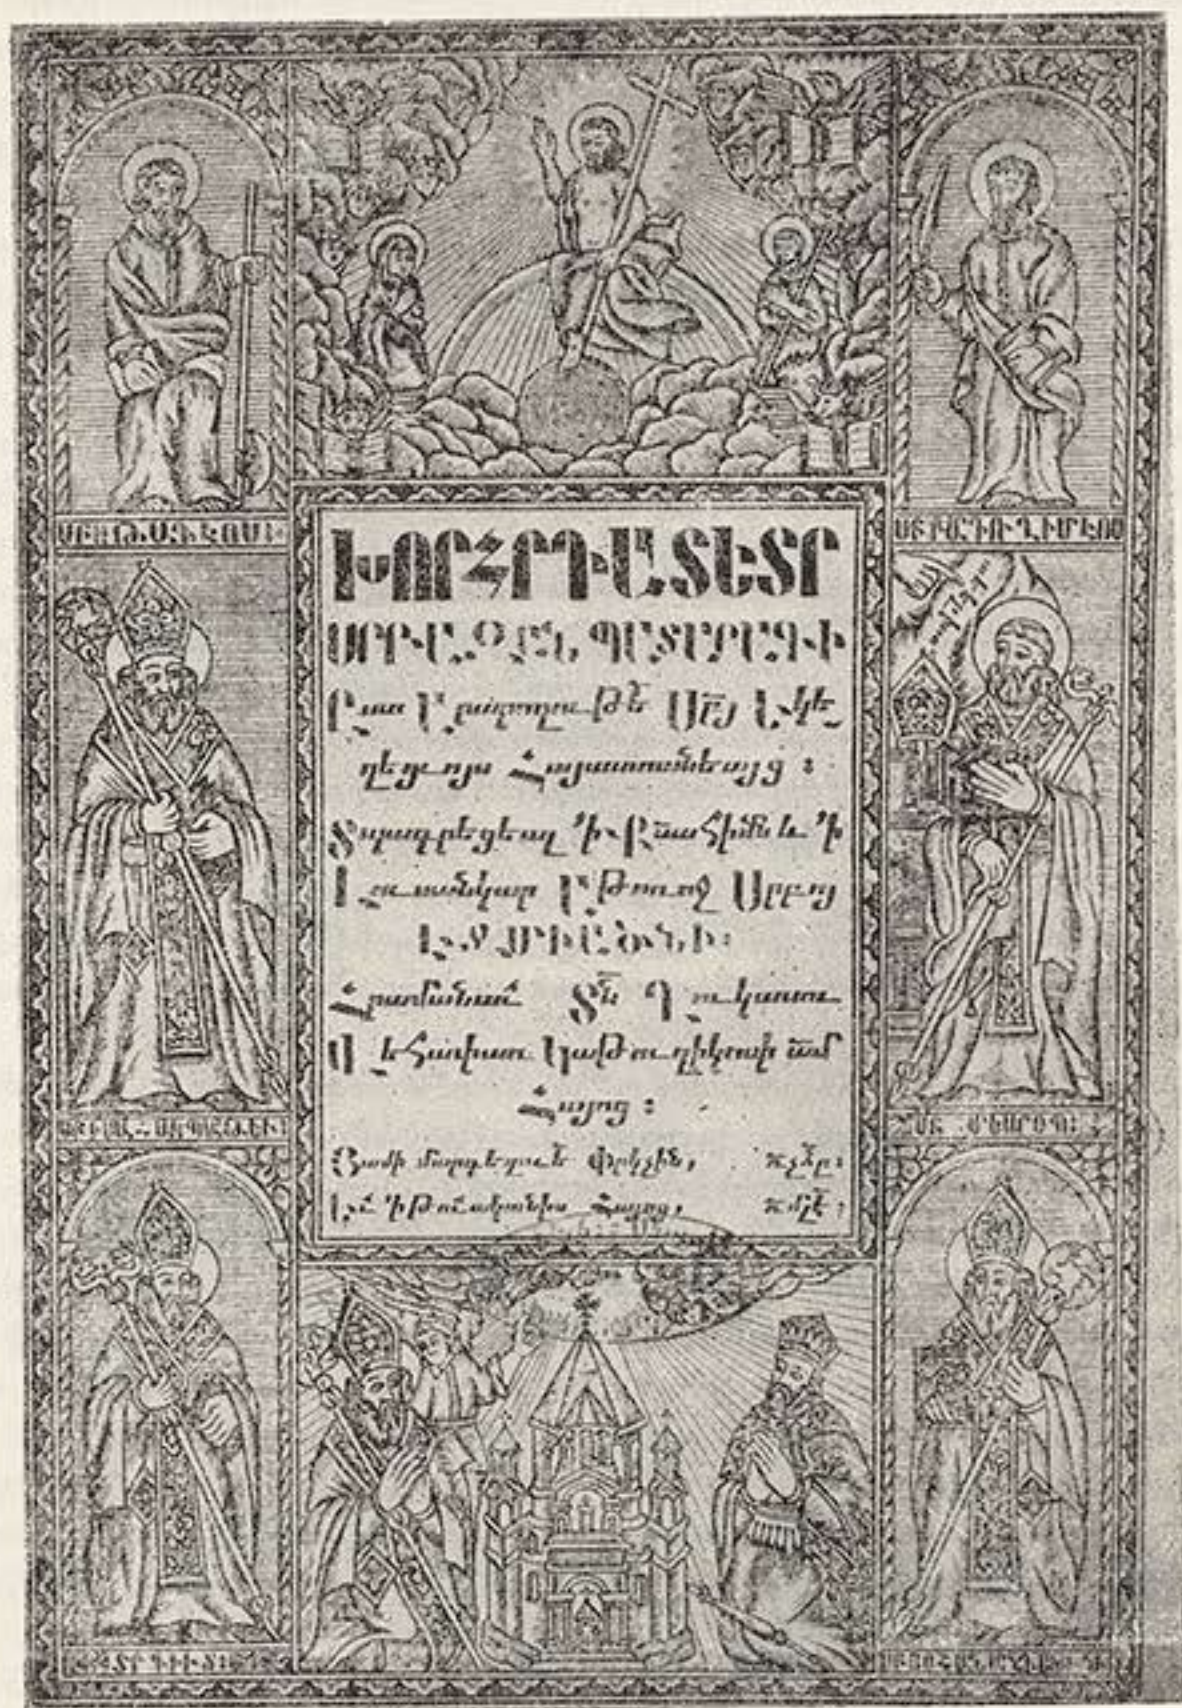 ՍԲ ԹԱԴԷՈՍ
ՍԲ ԲԱՐԴՈՒՂԻՄԷՈՍ
ԽՈՐՀՐԴԱՏԵՏՐ
ՍՐԲԱԶԱՆ ՊԱՏԱՐԱԳԻ
Ըստ Արարողութե Սրբյ Եկե
ղեցւոյս Հայաստանեայց :
Տպագրեցեալ ՚ի Բնահիմն և ՚ի
Լուսանկար Աթոռոջ Սրբոյ
ԷՋՄԻԱԾՆԻ:
Հրամանաւ Տն Ղուկասու
Վեհափառ Կաթուղիկոսի ամ
Հայոց :
Յամի մարդեղուե Փրկչին, ռչձը:
Իսկ ՚ի Թուականիս Հայոց, ռմլէ :
ՄԵՍՐՈՊ: